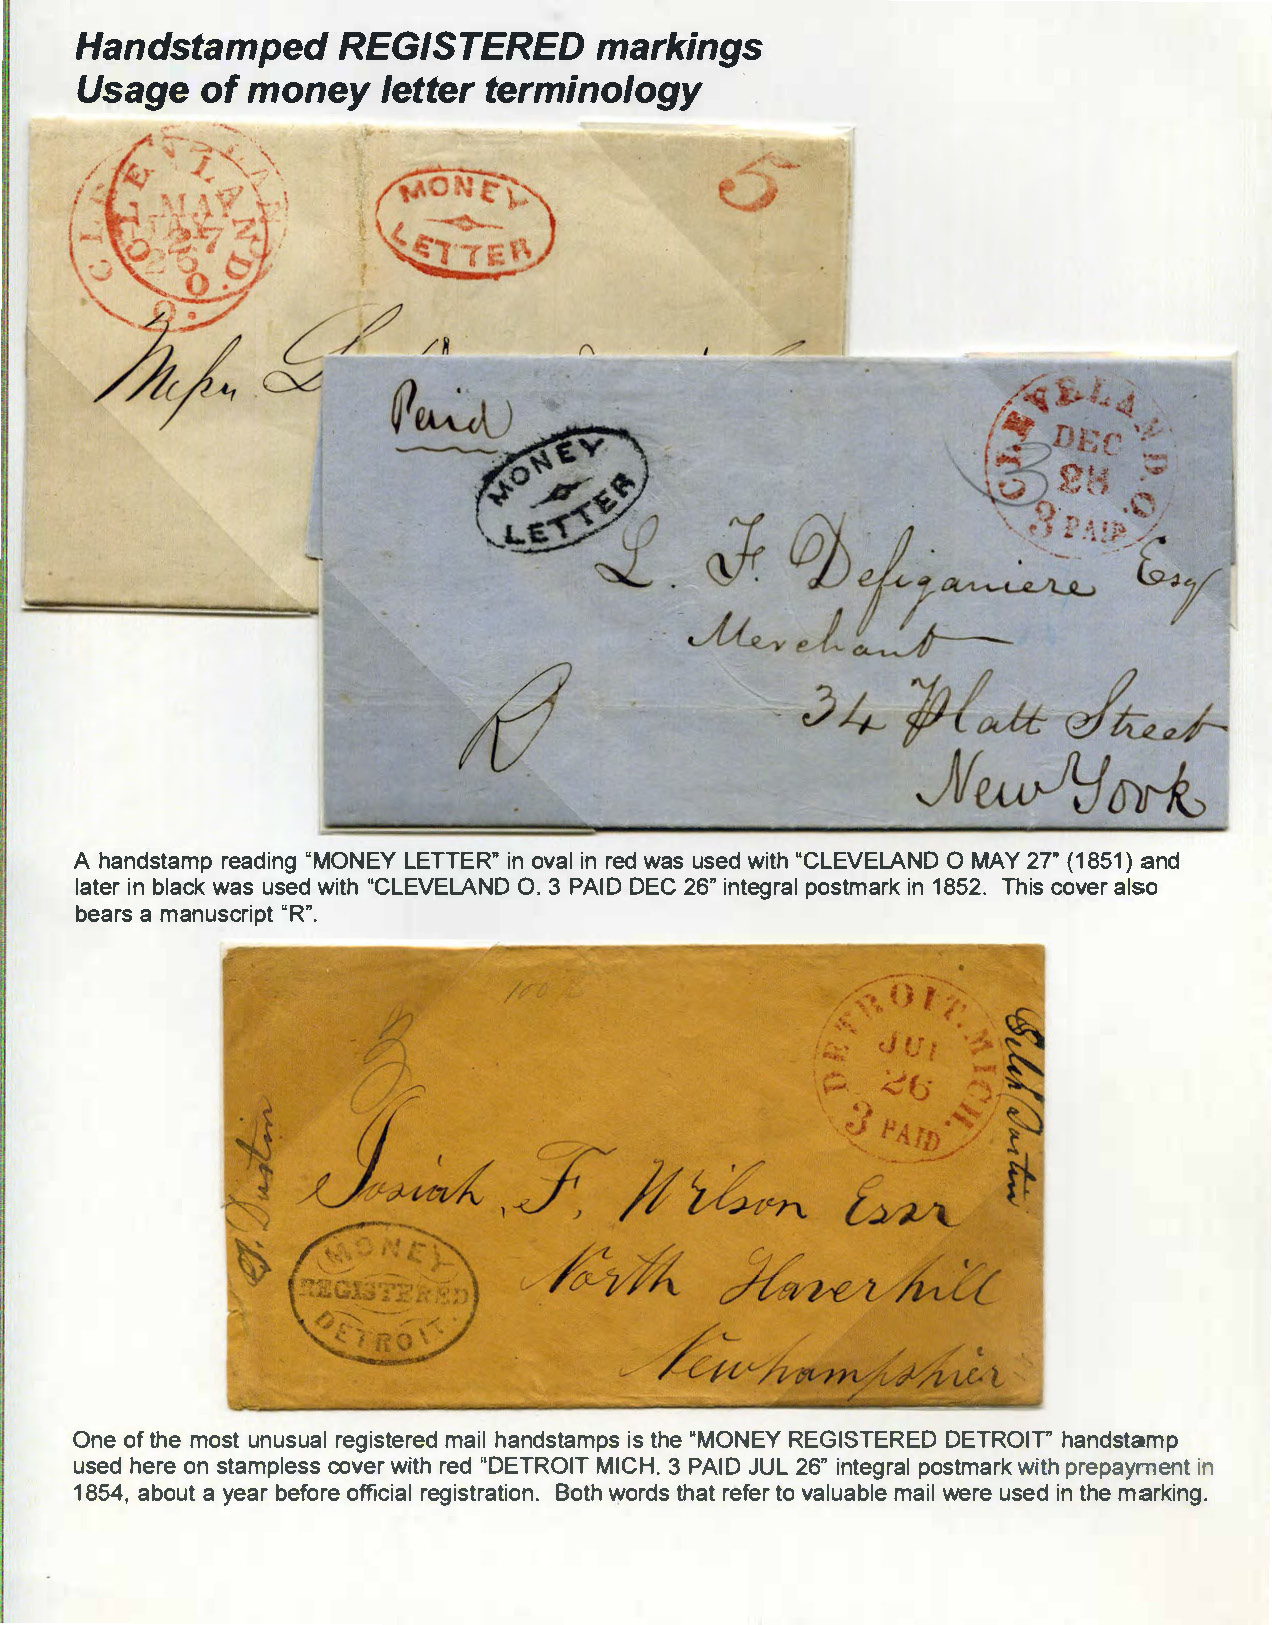 Handstamped REGISTERED markings
Usage of money letter terminology
CLEVELAND. O.
MAY
27
MONEY
LETTER
5
Paid
MONEY
LETTER
CLEVELAND. O.
DEC
28
3 PAID
3
L. F. Defiganiere Esqr
Merchant
34 Platt Street
New York
R
A handstamp reading "MONEY LETTER" in oval in red was used with "CLEVELAND O MAY 27" (1851) and
later in black was used with "CLEVELAND O. 3 PAID DEC 26" integral postmark in 1852. This cover also
bears a manuscript "R".
100
DETROIT. MICH.
JUL
26
3 PAID
Josiah F. Wilson Essr
North Haverhill
Newhampshier
MONEY
REGISTERED
DETROIT.
One of the most unusual registered mail handstamps is the "MONEY REGISTERED DETROIT" handstamp
used here on stampless cover with red "DETROIT MICH. 3 PAID JUL 26" integral postmark with prepayment in
1854, about a year before official registration. Both words that refer to valuable mail were used in the marking.